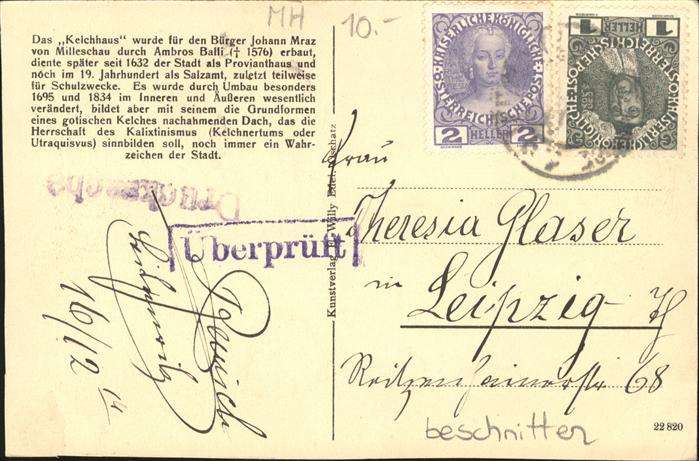 MH 10.-
Das „Kelchhaus" wurde für den Bürger Johann Mraz
von Milleschau durch Ambros Balli († 1576) erbaut,
diente später seit 1632 der Stadt als Provianthaus und
noch im 19. Jahrhundert als Salzamt, zuletzt teilweise
für Schulzwecke. Es wurde durch Umbau besonders
1695 und 1834 im Inneren und Äußeren wesentlich
verändert, bildet aber mit seinem die Grundformen
eines gotischen Kelches nachahmenden Dach, das die
Herrschaft des Kalixtinismus (Kelchnertums oder
Utraquisvus) sinnbilden soll, noch immer ein Wahr-
zeichen der Stadt.
Drucksache
Überprüft
16/12 14
Kunstverlag
KAISERLICHE KÖNIGLICHE
ÖSTERREICHISCHE POST
2 HELLER 2
1 HELLER 1
Frau
Theresia Glaser
in
Leipzig
68
beschnitten
22 820